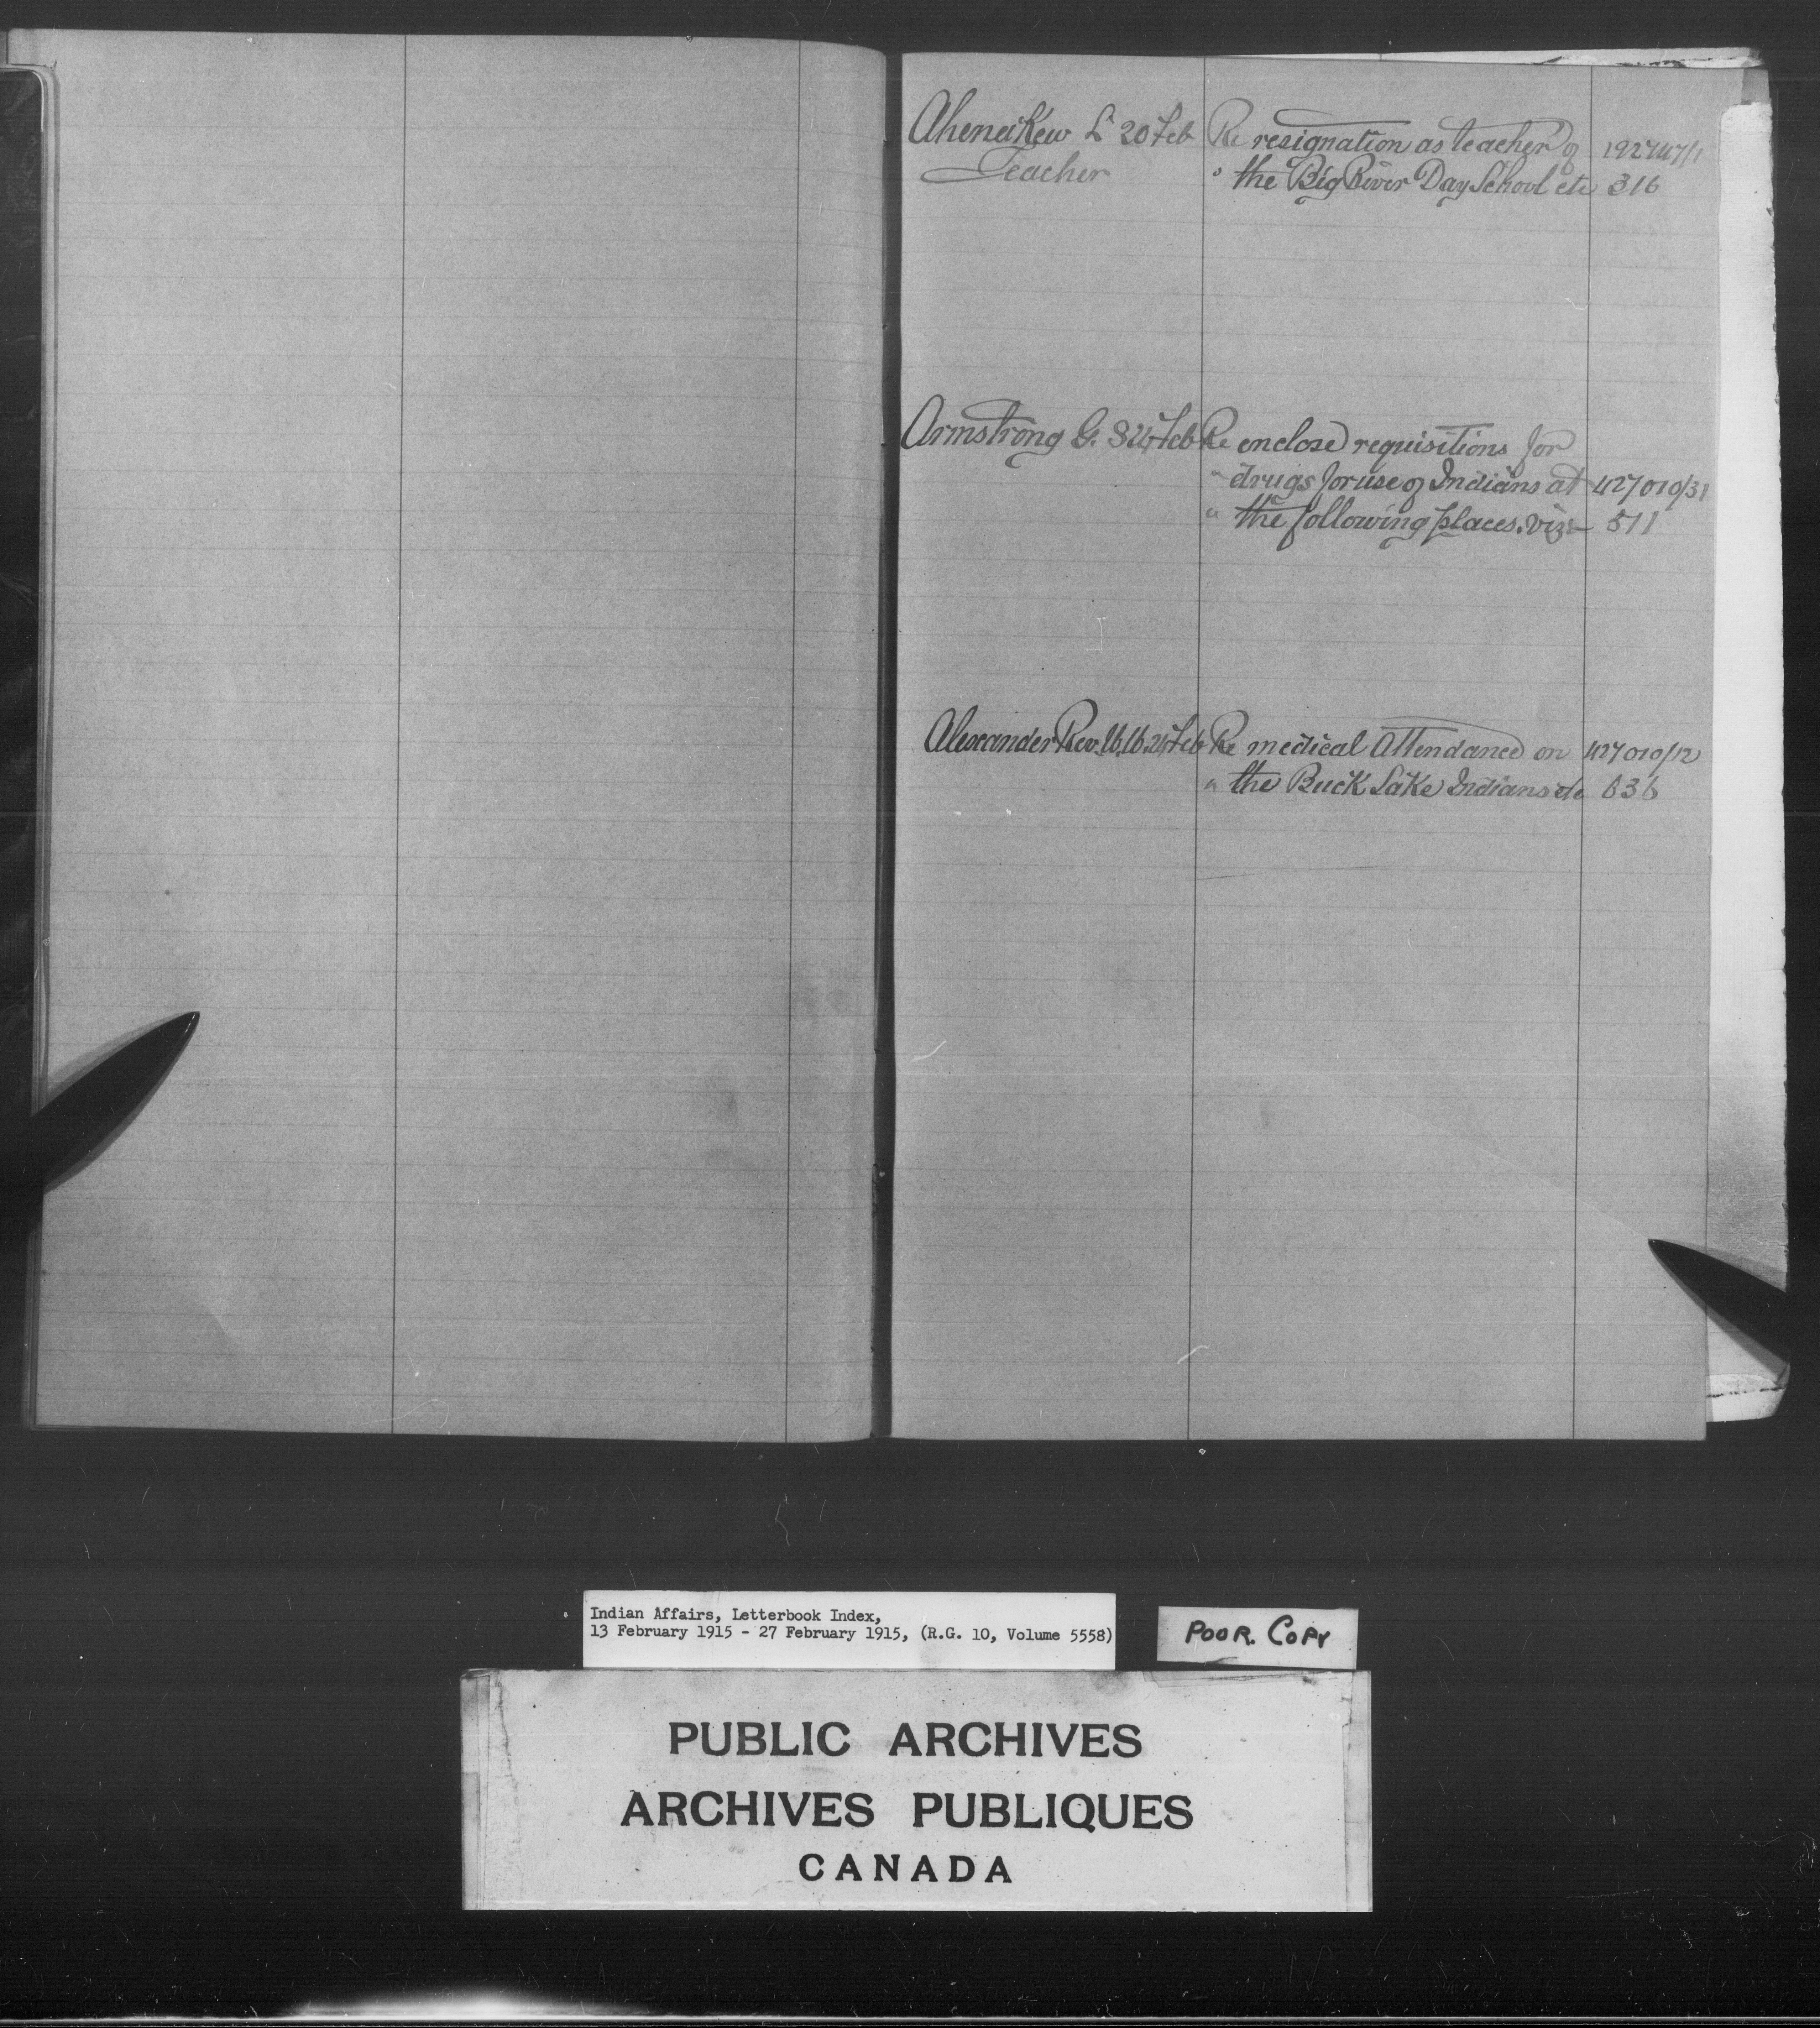 Ahenakew L. 20 Feb Re resignation as teacher of 192747/1
Teacher " the Big River Day School etc 316
Armstrong G. S 24 Feb Re enclose requisitions for
" drugs for use of Indians at 427010/31
" the following places. viz:- 511
Alexander Rev. 24 Feb Re medical Attendance on 427010/12
" the Buck Lake Indians etc 636
Indian Affairs, Letterbook Index,
13 February 1915 - 27 February 1915, (R.G. 10, Volume 5558)
POOR. COPY
PUBLIC ARCHIVES
ARCHIVES PUBLIQUES
CANADA